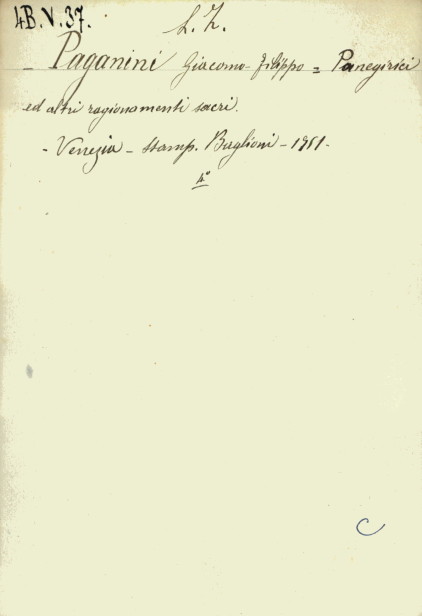 4B.V.37.
L. Z.
- Paganini Giacomo-Filippo = Panegirici
ed altri ragionamenti sacri.
- Venezia - stamp. Baglioni - 1751 -
4°
C